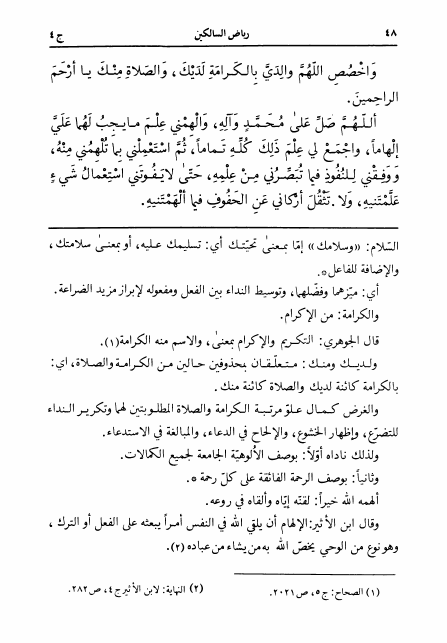 ٤٨ رياض السالكين ج٤
وَاخْصُصِ اللّهُمَّ والِدَيَّ بِالكَرامَةِ لَدَيْكَ، وَالصَلاةِ مِنْكَ يا أرْحَمَ
الراحِمينَ.
أللّهُمَّ صَلِّ عَلىٰ مُحَمَّدٍ وَآلِهِ، وَألْهِمْني عِلْمَ ما يَجِبُ لَهُما عَلَيَّ
إلْهاماً، وَاجْمَعْ لي عِلْمَ ذلِكَ كُلِّهِ تَماماً، ثُمَّ اسْتَعْمِلْني بِما تُلْهِمُني مِنْهُ،
وَوَفِّقْني لِلنُفُوذِ فيما تُبَصِّرُني مِنْ عِلْمِهِ، حَتّىٰ لا يَفُوتَني اسْتِعْمالُ شَيءٍ
عَلَّمْتَنيهِ، وَلا تَثْقُلَ أرْكاني عَنِ الحَفُوفِ فيما ألْهَمْتَنيهِ.
السّلام: «وسلامك» إمّا بمعنىٰ تحيّتك أي: تسليمك عليه، أو بمعنىٰ سلامتك،
والإضافة للفاعل *.
أي: ميّزهما وفضّلهما، وتوسيط النداء بين الفعل ومفعوله لإبراز مزيد الضراعة.
والكرامة: من الإكرام.
قال الجوهري: التكريم والإكرام بمعنىٰ، والاسم منه الكرامة(١).
ولديك ومنك: متعلّقان بمحذوفين حالين من الكرامة والصلاة، اي:
بالكرامة كائنة لديك والصلاة كائنة منك.
والغرض كمال علوّ مرتبة الكرامة والصلاة المطلوبتين لهما وتكرير النداء
للتضرّع، وإظهار الخشوع، والإلحاح في الدعاء، والمبالغة في الاستدعاء.
ولذلك ناداه أوّلاً: بوصف الألوهيّة الجامعة لجميع الكمالات.
وثانياً: بوصف الرحمة الفائقة على كلّ رحمة *.
ألهمه الله خيراً: لقنّه إيّاه وألقاه في روعه.
وقال ابن الأثير: الإلهام أن يلقي الله في النفس أمراً يبعثه على الفعل أو الترك،
وهو نوع من الوحي يخصّ الله به من يشاء من عباده (٢).
(١) الصحاح: ج٥، ص٢٠٢١. (٢) النهاية: لابن الأثير ج٤، ص٢٨٢.